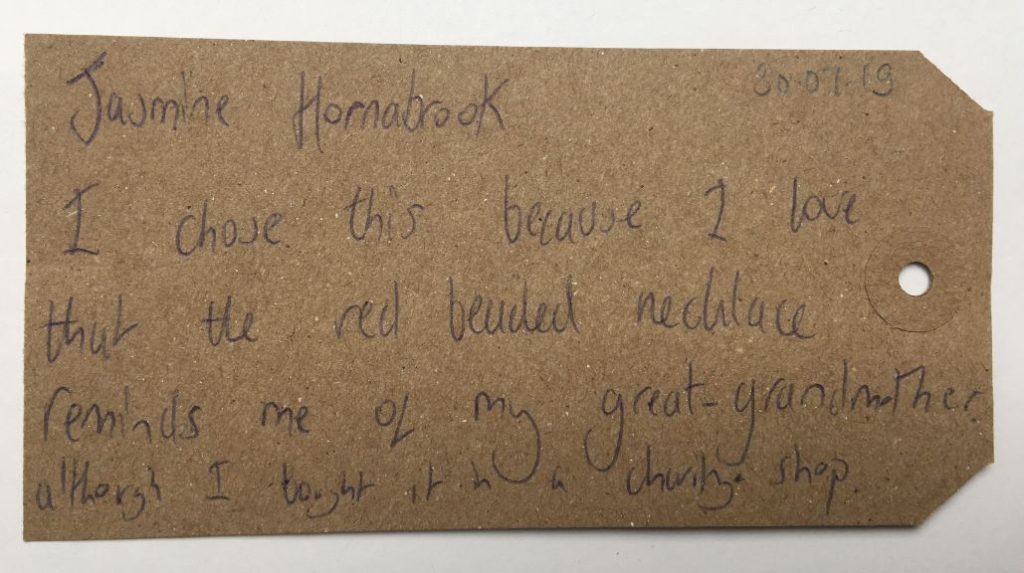 Jasmine Hornabrook
30.07.19
I chose this because I love
that the red beaded necklace
reminds me of my great-grandmother
although I bought it in a charity shop.